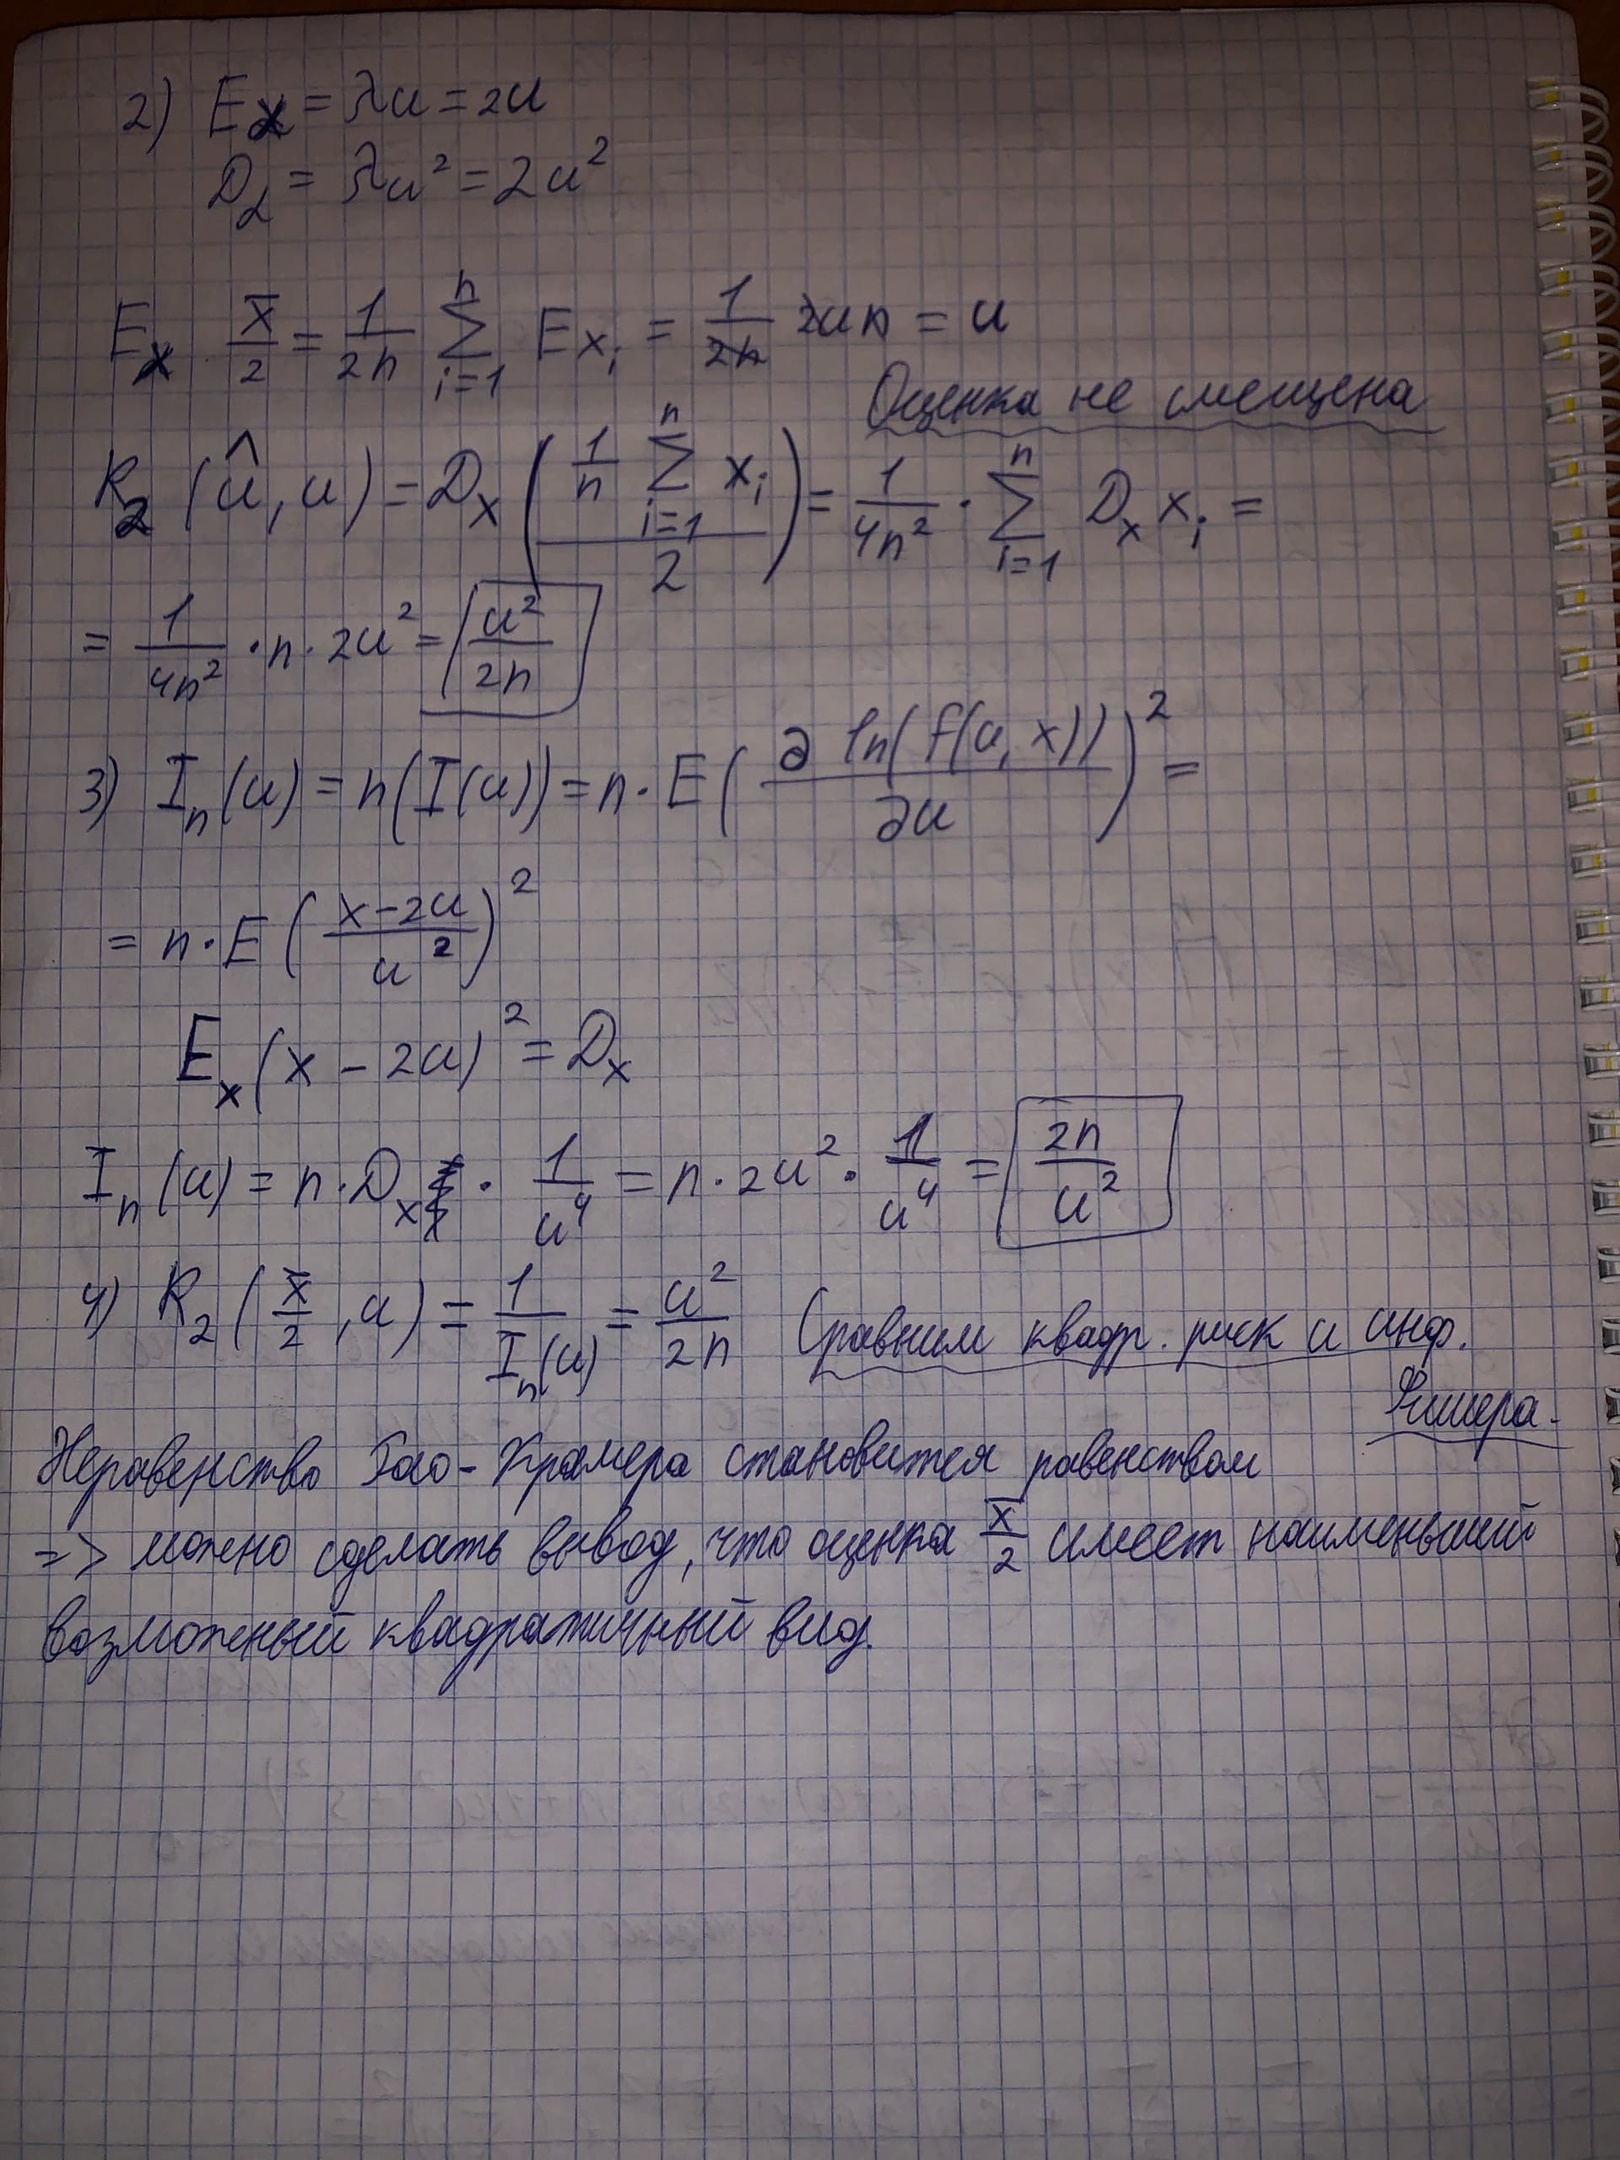 2) Ex = λu = 2u
D₂ = λu² = 2u²
Eₓ x̄/2 = 1/2n ∑ᵢ₌₁ⁿ Exᵢ = 1/2n 2un = u
Оценка не смещена
R₂ (û, u) = Dₓ (1/n ∑ᵢ₌₁ⁿ xᵢ / 2) = 1/4n² · ∑ᵢ₌₁ⁿ Dₓ xᵢ =
= 1/4n² · n · 2u² = u²/2n
3) Iₙ(u) = n(I(u)) = n · E(∂ ln(f(u, x)) / ∂u)² =
= n · E(x-2u / u²)²
Eₓ(x - 2u)² = Dₓ
Iₙ(u) = n · Dₓ · 1/u⁴ = n · 2u² · 1/u⁴ = 2n/u²
4) R₂(x̄/2, u) = 1/Iₙ(u) = u²/2n Сравним квадр. риск и инф.
Фишера.
Неравенство Рао-Крамера становится равенством
=> можно сделать вывод, что оценка x̄/2 имеет наименьший
возможный квадратичный вид.